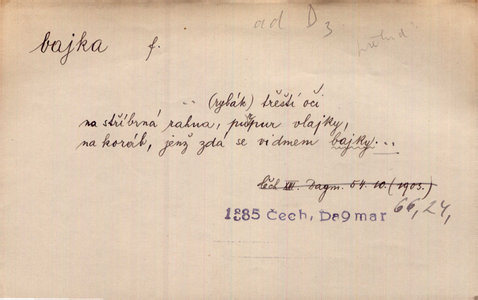 ad D3
bajka f.
.. (rybák) třeští oči
na stříbrná rahna, purpur vlajky,
na koráb, jenž zda se vidmem bajky...
Čech III. Dagm. 54. 10. (1903.)
1885 Čech, Dagmar 66, 24,